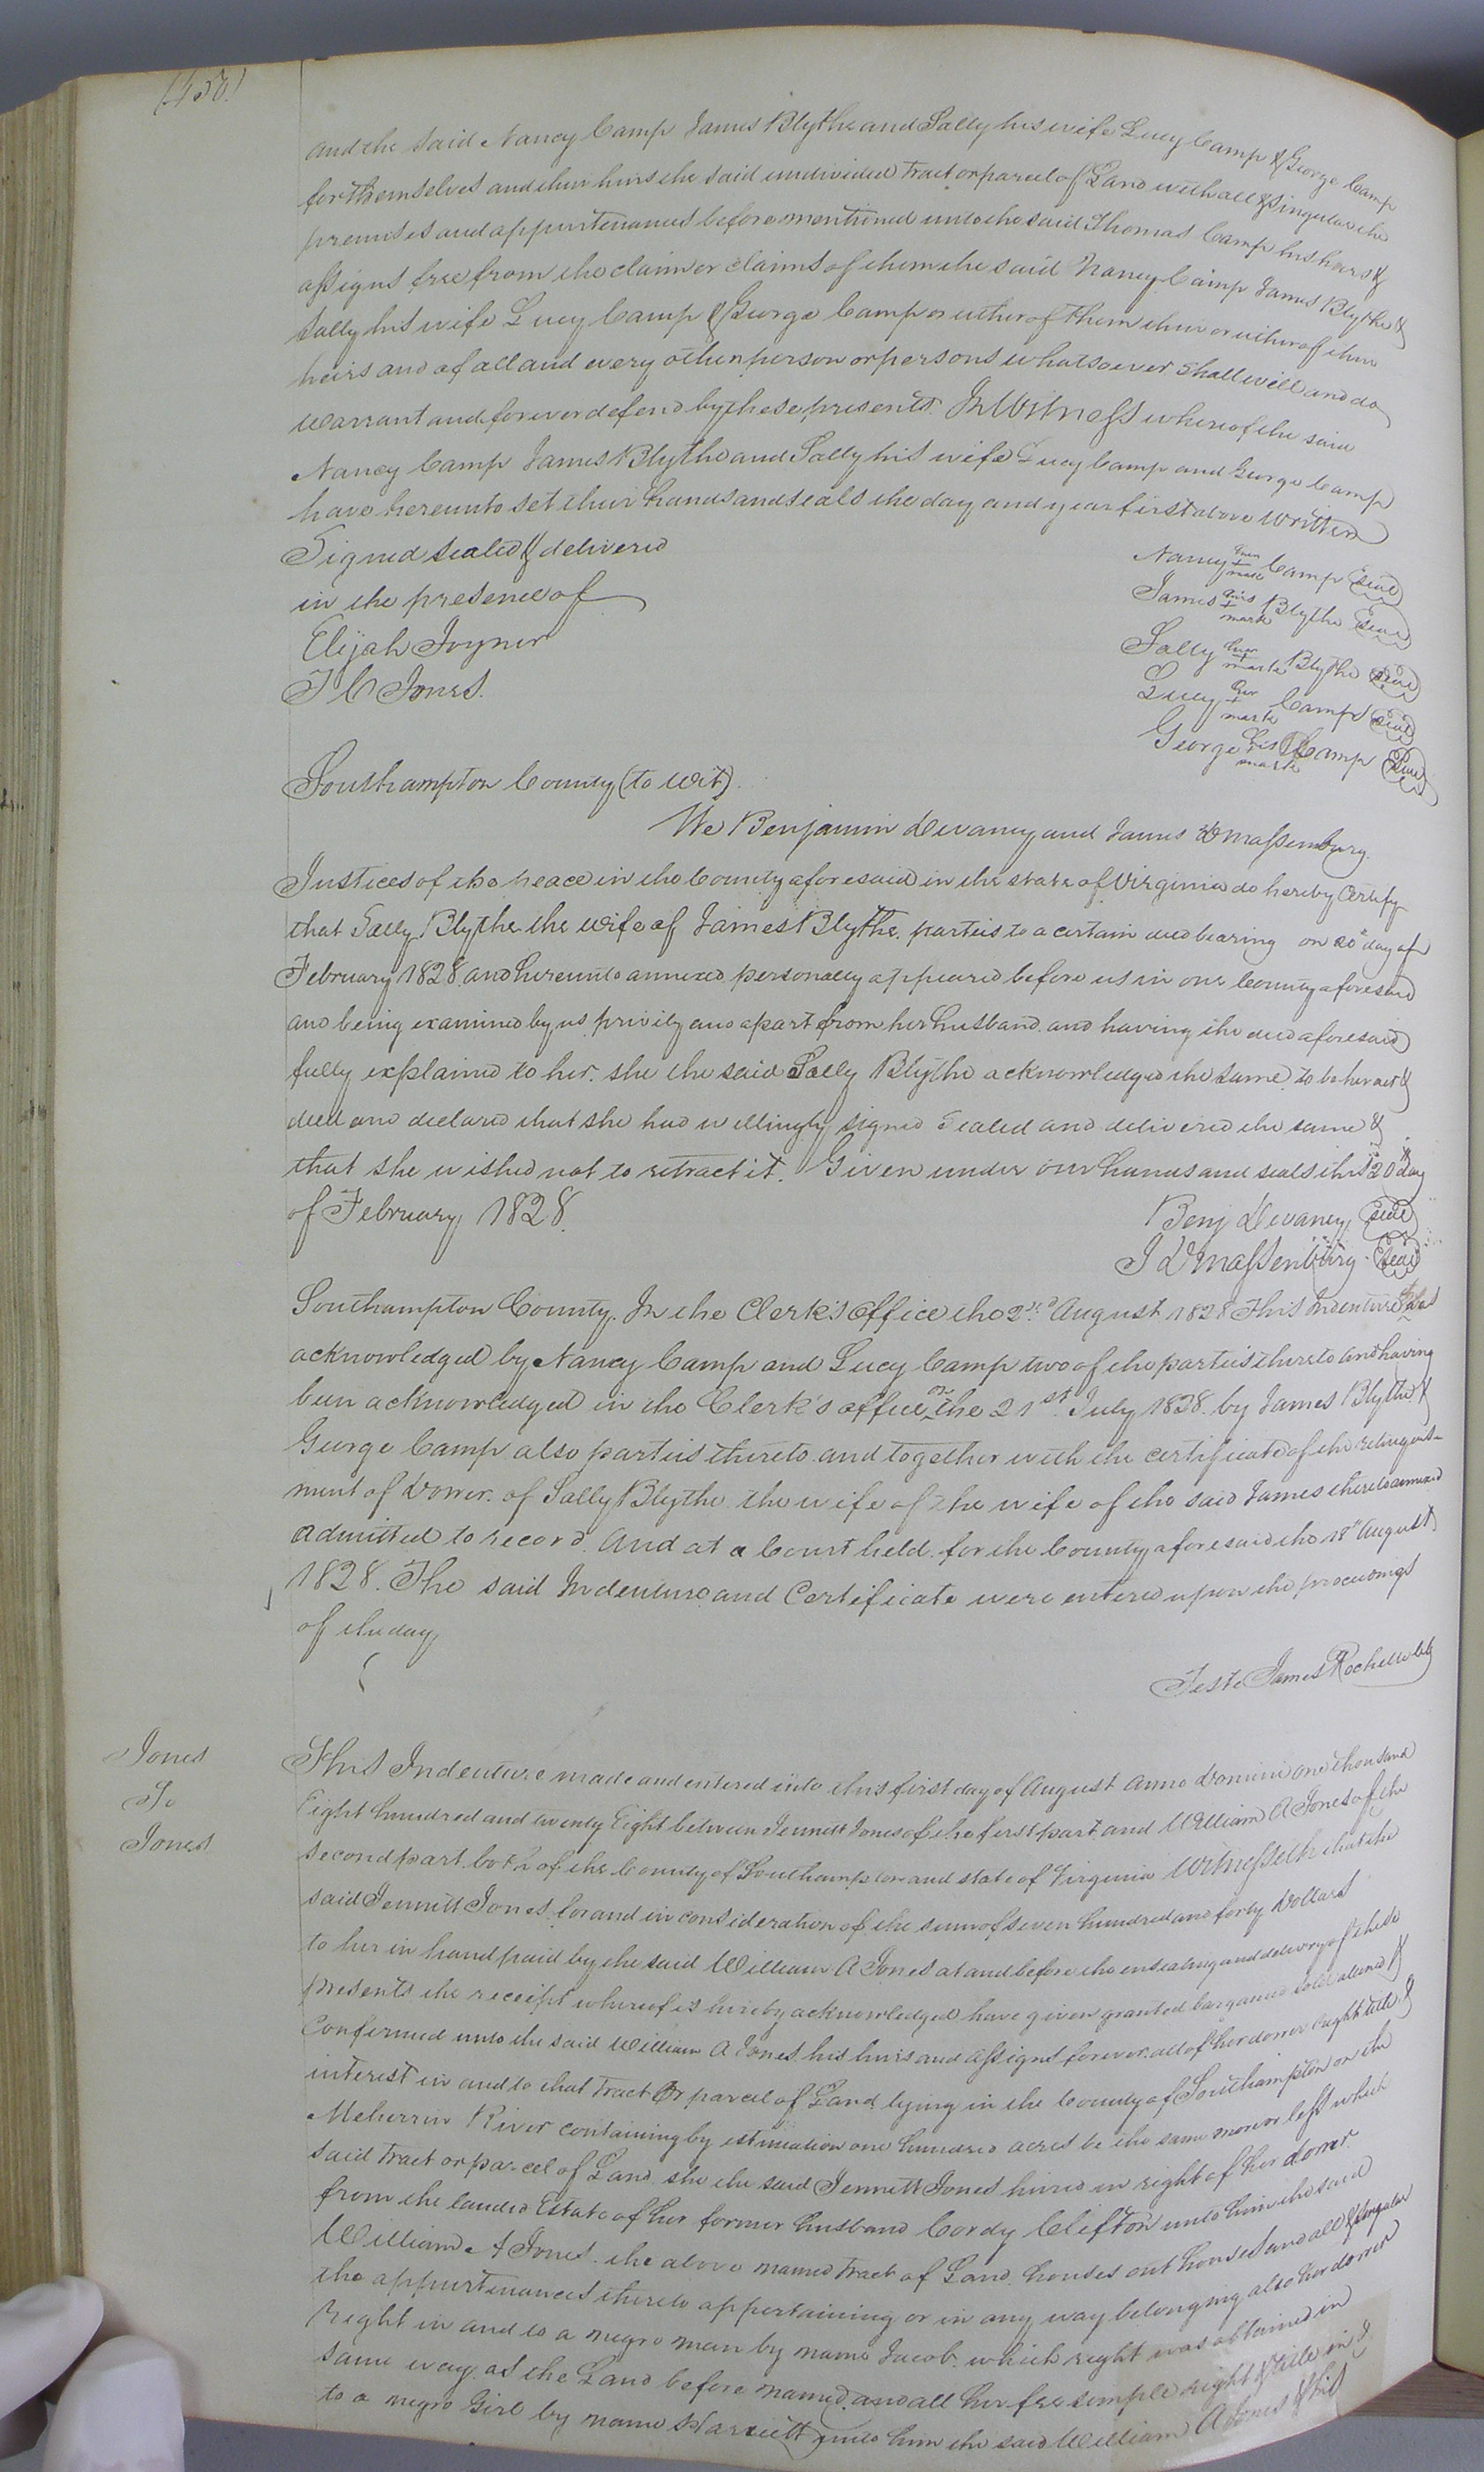 (450)
and the said Nancy Camp James Blythe and Sally his wife Lucy Camp & George Camp
for themselves and their heirs the said undivided tract or parcel of Land with all & singular the
premises and appurtenances before mentioned unto the said Thomas Camp his heirs &
assigns free from the claim or claims of them the said Nancy Camp James Blythe &
Sally his wife Lucy Camp & George Camp or either of them their or either of their
heirs and of all and every other person or persons whatsoever shall will and do
warrant and forever defend by these presents. In Witness whereof the said
Nancy Camp James Blythe and Sally his wife Lucy Camp and George Camp
have hereunto set their hands and seals the day and year first above written
Signed sealed & delivered
in the presence of
Elijah Joyner
J C Jones.
Nancy her + mark Camp Seal
James his + mark Blythe Seal
Sally her + mark Blythe Seal
Lucy her + mark Camp Seal
George his + mark Camp Seal
Southampton County (to wit).
We Benjamin Devaney and James D Massenburg
Justices of the peace in the County aforesaid in the state of Virginia do hereby Certify
that Sally Blythe the wife of James Blythe parties to a certain deed bearing on 20th day of
February 1828 and hereunto annexed personally appeared before us in our County aforesaid
and being examined by us privily and apart from her husband and having the deed aforesaid
fully explained to her. she the said Sally Blythe acknowledged the same to be her act &
deed and declared that she had willingly signed sealed and delivered the same &
that she wished not to retract it. Given under our hands and seals this 20th day
of February 1828.
Benj Devaney Seal
J D Massenburg Seal
Southampton County. In the Clerk's Office the 2nd August 1828 This Indenture was
acknowledged by Nancy Camp and Lucy Camp two of the parties thereto and having
been acknowledged in the Clerk's office on the 21st July 1828. by James Blythe &
George Camp also parties thereto and together with the certificate of the relinquish-
ment of Dower. of Sally Blythe the wife of the wife of the said James thereto annexed
admitted to record. And at a Court held for the County aforesaid the 18th August
1828. The said Indenture and Certificate were entered upon the proceedings
of the day
Teste James Rochelle Clk
Jones
To
Jones
This Indenture made and entered into this first day of August Anno Domini one thousand
Eight hundred and twenty Eight between Jennett Jones of the first part and William A Jones of the
second part both of the County of Southampton and state of Virginia Witnesseth that the
said Jennett Jones for and in consideration of the sum of seven hundred and forty Dollars
to her in hand paid by the said William A Jones at and before the ensealing and delivery of these
presents the receipt whereof is hereby acknowledged have given granted bargained sold aliened &
Confirmed unto the said William A Jones his heirs and assigns forever all of her dower right title &
interest in and to that tract or parcel of Land lying in the County of Southampton on the
Meherrin River containing by estimation one hundred acres be the same more or less which
said tract or parcel of Land she the said Jennett Jones in right of her dower
from the landed Estate of her former husband Cordy Clifton unto him the said
William A Jones the above named tract of Land houses out houses and all & singular
the appurtenances thereto appertaining or in any way belonging also her dower
Right in and to a negro man by name Jacob. which right was obtained in
same way as the Land before named. and all her fee simple right & title in &
to a negro Girl by name Harriett unto him the said William A Jones & his